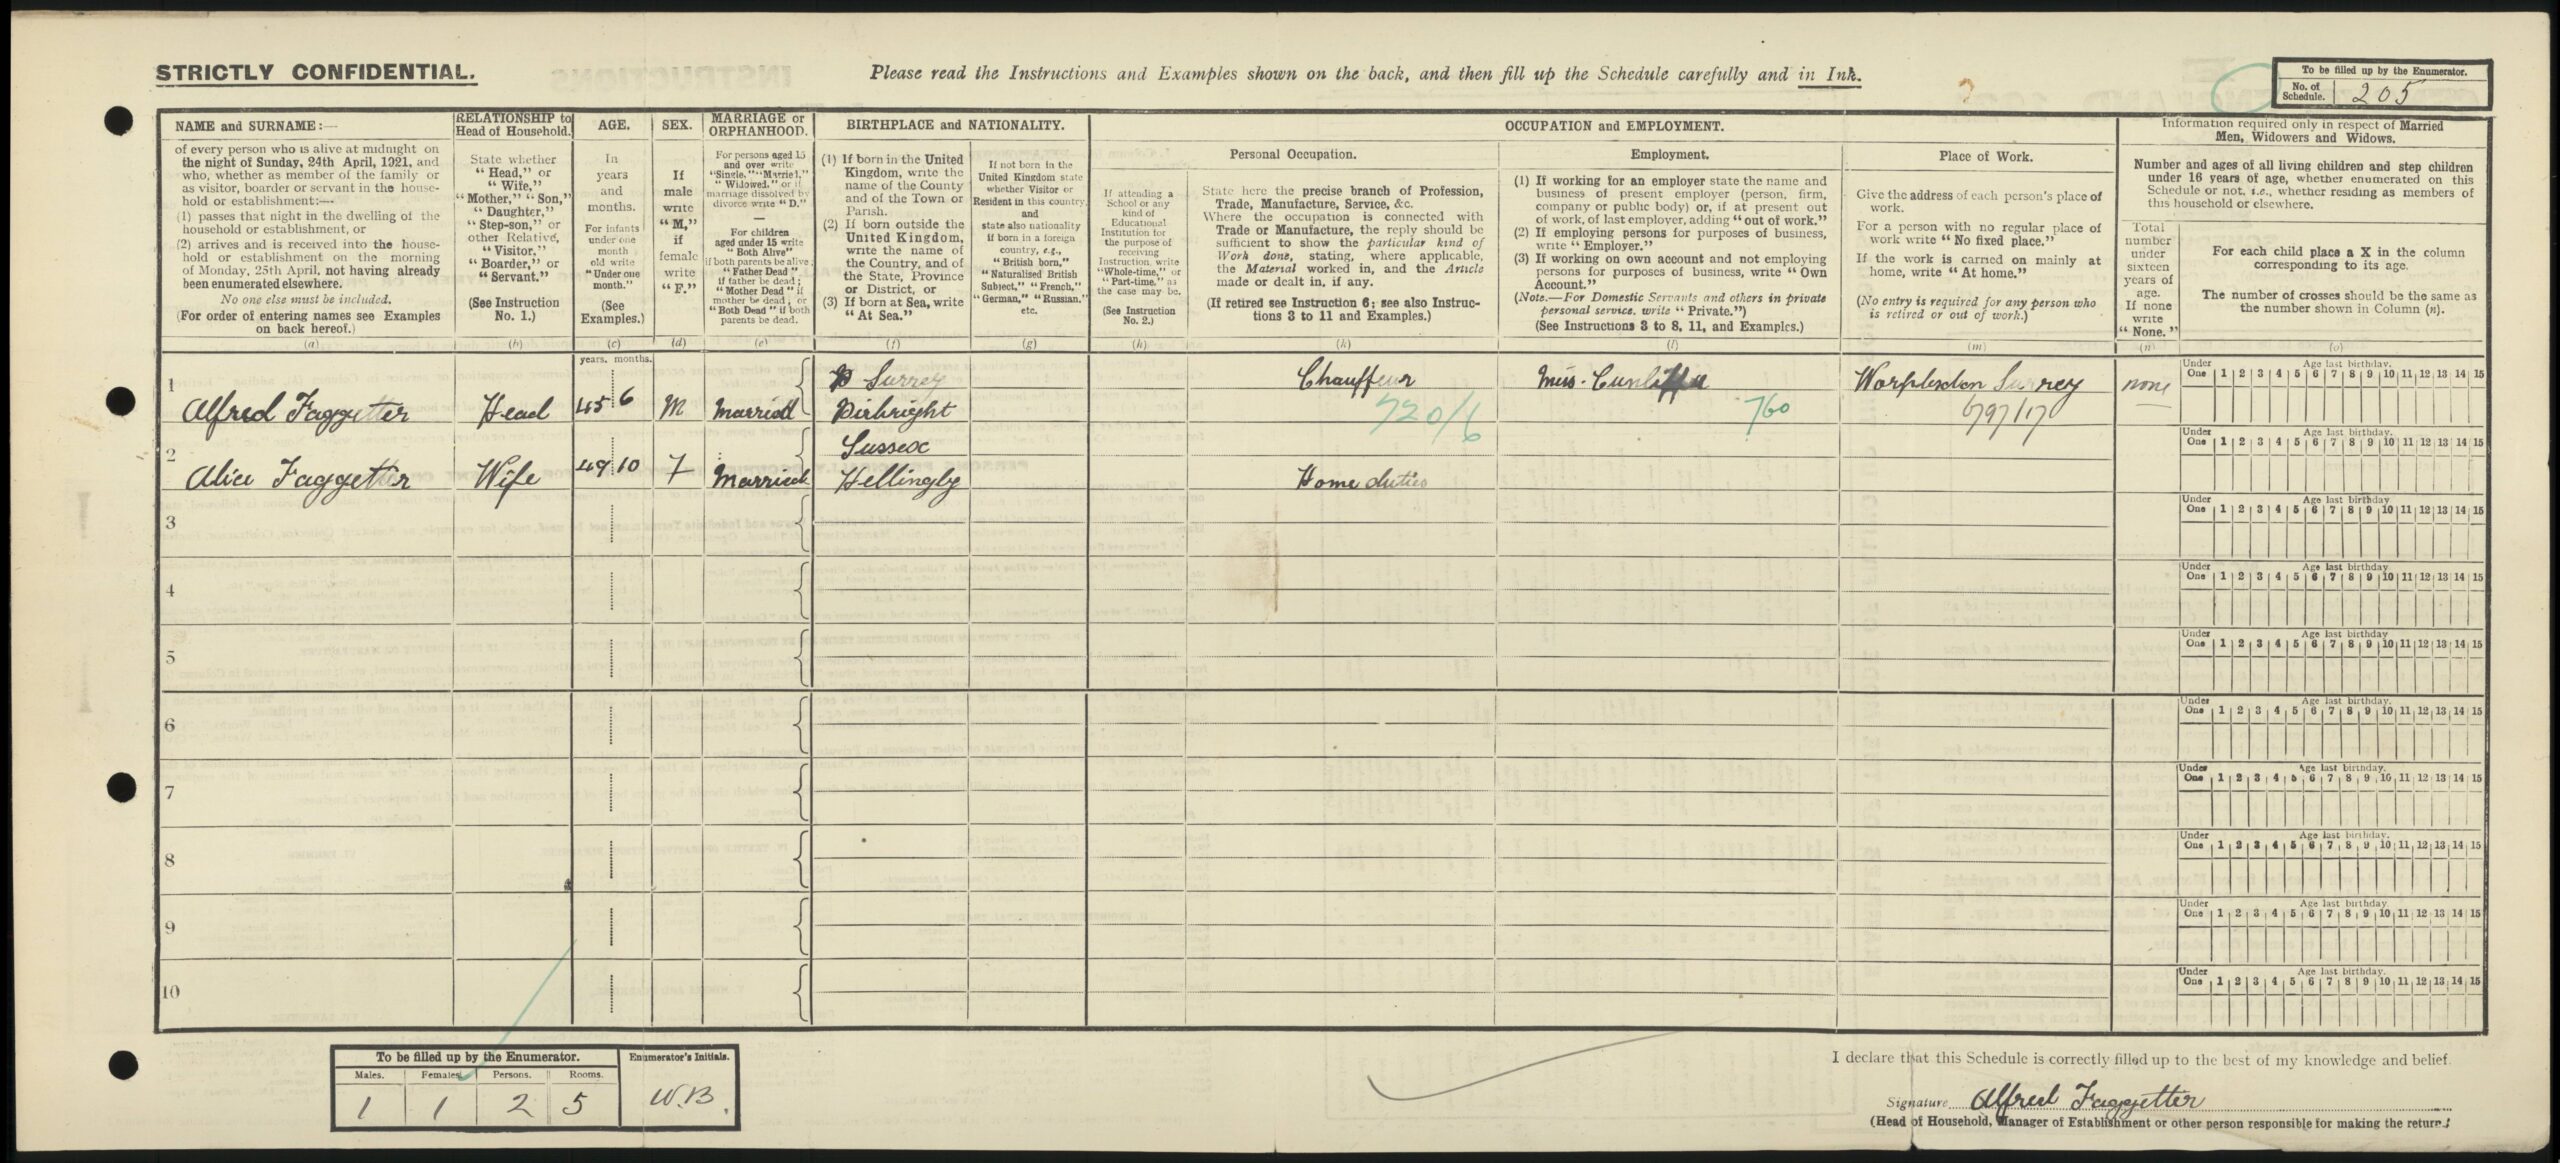 STRICTLY CONFIDENTIAL.
Please read the Instructions and Examples shown on the back, and then fill up the Schedule carefully and in Ink.
To be filled up by the Enumerator.
No. of Schedule. 205
NAME and SURNAME:—
of every person who is alive at midnight on
the night of Sunday, 24th April, 1921, and
who, whether as member of the family or
as visitor, boarder or servant in the house-
hold or establishment:—
(1) passes that night in the dwelling of the
household or establishment, or
(2) arrives and is received into the house-
hold or establishment on the morning
of Monday, 25th April, not having already
been enumerated elsewhere.
No one else must be included.
(For order of entering names see Examples
on back hereof.)
(a)
RELATIONSHIP to
Head of Household.
State whether
"Head," or
"Wife,"
"Mother," "Son,"
"Daughter,"
"Step-son," or
other Relative,
"Visitor,"
"Boarder," or
"Servant."
(See Instruction
No. 1.)
(b)
AGE.
In
years
and
months.
For infants
under one
month
old write
"Under one
month."
(See
Examples.)
(c)
years. months.
SEX.
If
male
write
"M,"
if
female
write
"F."
(d)
MARRIAGE or
ORPHANHOOD.
For persons aged 15
and over write
"Single," "Married,"
"Widowed," or if
marriage dissolved by
divorce write "D."
—
For children
aged under 15 write
"Both Alive"
if both parents be alive;
"Father Dead"
if father be dead;
"Mother Dead" if
mother be dead; or
"Both Dead" if both
parents be dead.
(e)
BIRTHPLACE and NATIONALITY.
(1) If born in the United
Kingdom, write the
name of the County
and of the Town or
Parish.
(2) If born outside the
United Kingdom,
write the name of
the Country, and of
the State, Province
or District, or
(3) If born at Sea, write
"At Sea."
(f)
If not born in the
United Kingdom state
whether Visitor or
Resident in this country,
and
state also nationality
if born in a foreign
country, e.g.,
"British born,"
"Naturalised British
Subject," "French,"
"German," "Russian,"
etc.
(g)
OCCUPATION and EMPLOYMENT.
If attending a
School or any
kind of
Educational
Institution for
the purpose of
receiving
Instruction, write
"Whole-time," or
"Part-time," as
the case may be.
(See Instruction
No. 2.)
(h)
Personal Occupation.
State here the precise branch of Profession,
Trade, Manufacture, Service, &c.
Where the occupation is connected with
Trade or Manufacture, the reply should be
sufficient to show the particular kind of
Work done, stating, where applicable,
the Material worked in, and the Article
made or dealt in, if any.
(If retired see Instruction 6; see also Instruc-
tions 3 to 11 and Examples.)
(k)
Employment.
(1) If working for an employer state the name and
business of present employer (person, firm,
company or public body) or, if at present out
of work, of last employer, adding "out of work."
(2) If employing persons for purposes of business,
write "Employer."
(3) If working on own account and not employing
persons for purposes of business, write "Own
Account."
(Note.—For Domestic Servants and others in private
personal service, write "Private.")
(See Instructions 3 to 8, 11, and Examples.)
(l)
Place of Work.
Give the address of each person's place of
work.
For a person with no regular place of
work write "No fixed place."
If the work is carried on mainly at
home, write "At home."
(No entry is required for any person who
is retired or out of work.)
(m)
Information required only in respect of Married
Men, Widowers and Widows.
Number and ages of all living children and step children
under 16 years of age, whether enumerated on this
Schedule or not, i.e., whether residing as members of
this household or elsewhere.
Total
number
under
sixteen
years of
age.
If none
write
"None."
(n)
For each child place a X in the column
corresponding to its age.
The number of crosses should be the same as
the number shown in Column (n).
(o)
1 Alfred Faggetter Head 45 6 M Married Surrey Pirbright Chauffeur 720/6 Miss. Cunliffe 760 Worplesdon Surrey 797/170 none
Under One Age last birthday. 1 2 3 4 5 6 7 8 9 10 11 12 13 14 15
2 Alice Faggetter Wife 49 10 F Married Sussex Hellingly Home duties
Under One Age last birthday. 1 2 3 4 5 6 7 8 9 10 11 12 13 14 15
3
Under One Age last birthday. 1 2 3 4 5 6 7 8 9 10 11 12 13 14 15
4
Under One Age last birthday. 1 2 3 4 5 6 7 8 9 10 11 12 13 14 15
5
Under One Age last birthday. 1 2 3 4 5 6 7 8 9 10 11 12 13 14 15
6
Under One Age last birthday. 1 2 3 4 5 6 7 8 9 10 11 12 13 14 15
7
Under One Age last birthday. 1 2 3 4 5 6 7 8 9 10 11 12 13 14 15
8
Under One Age last birthday. 1 2 3 4 5 6 7 8 9 10 11 12 13 14 15
9
Under One Age last birthday. 1 2 3 4 5 6 7 8 9 10 11 12 13 14 15
10
Under One Age last birthday. 1 2 3 4 5 6 7 8 9 10 11 12 13 14 15
To be filled up by the Enumerator.
Males. Females. Persons. Rooms.
1 1 2 5
Enumerator's Initials.
W.B.
I declare that this Schedule is correctly filled up to the best of my knowledge and belief.
Signature Alfred Faggetter
(Head of Household, Manager of Establishment or other person responsible for making the return.)